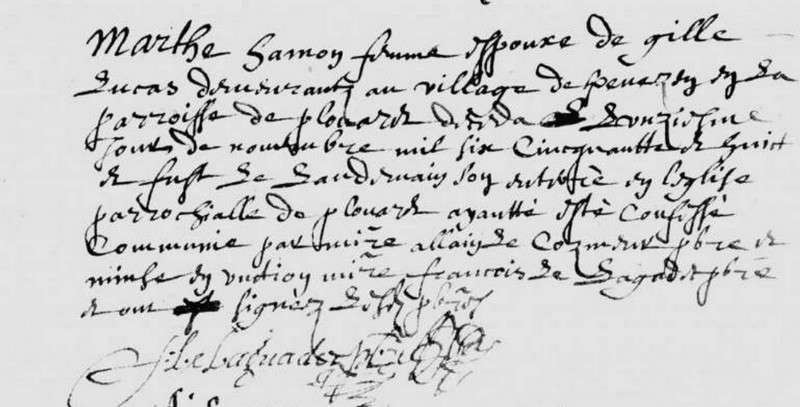 Marthe hamon femme espouxe de gille
Lucas demeurantz au village de en la
parroisse de plouaret deceda le Lonziesme
jour de novembre mil six Cincquantte et huict
et fust le Landemain son enterré en leglise
parrochialle de plouaret ayantté esté Confessé
Communié par mire allain Le Cozmeur pbre et
minse en unction mire francois Le Lagadec pbre
et ont signéez Lesdz pbres
f: Le Lagadec pbre